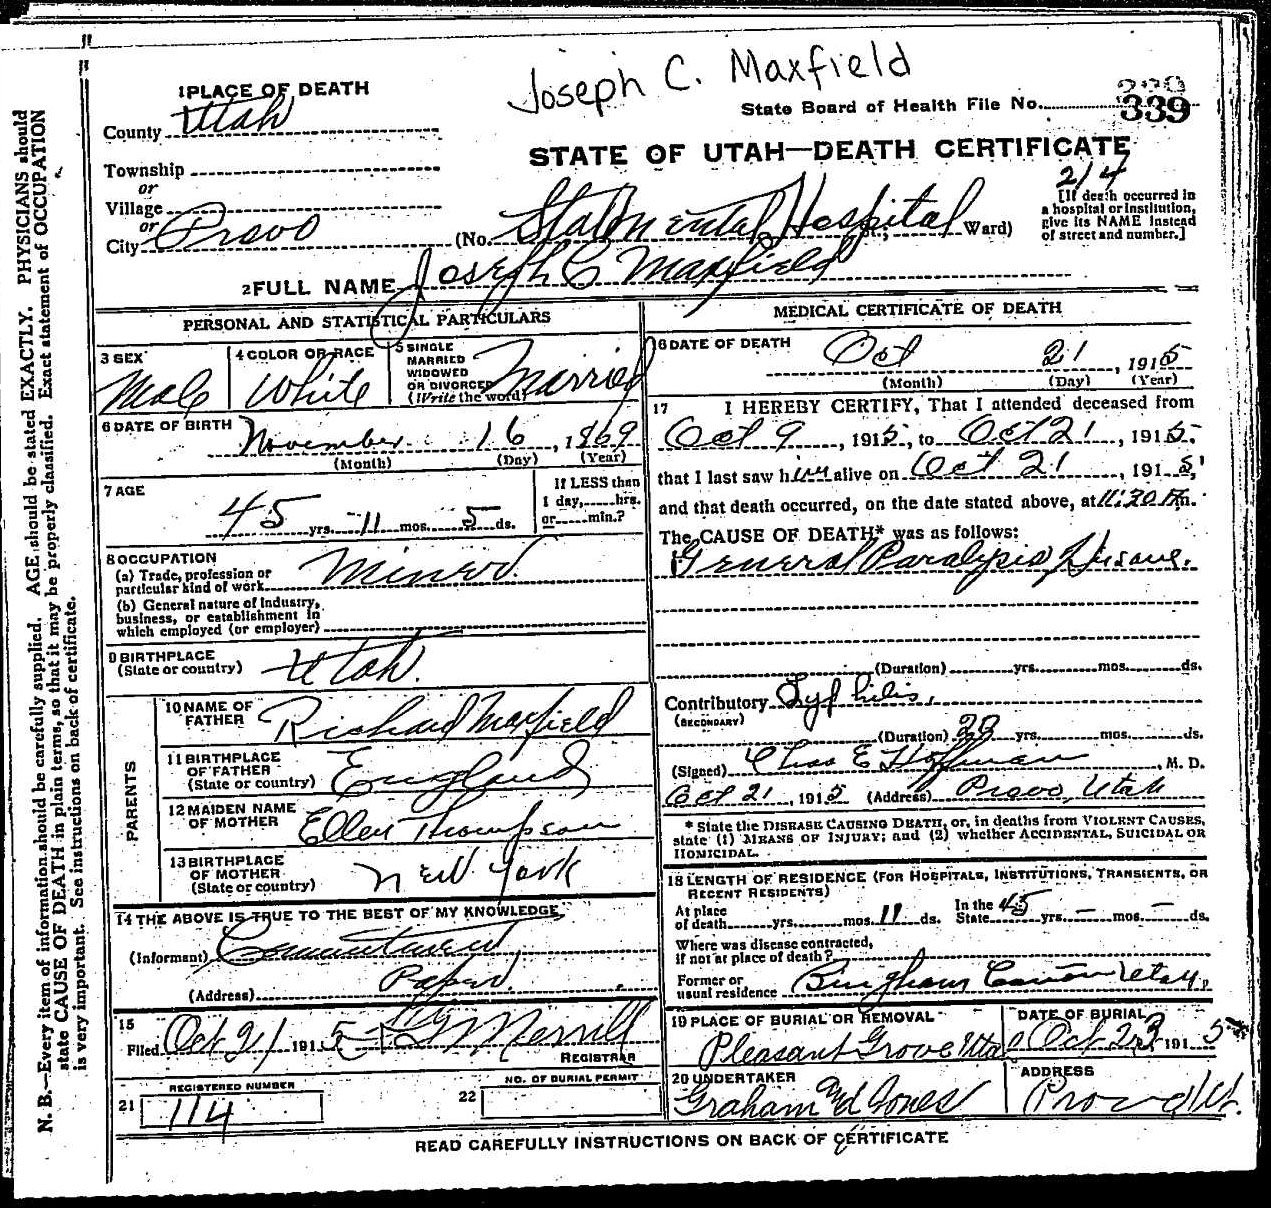 Joseph C. Maxfield
1 PLACE OF DEATH
County Utah
State Board of Health File No. 339
339
STATE OF UTAH—DEATH CERTIFICATE
Township
or
Village
or
City Provo
(No. State Mental Hospital St.; Ward)
214
[If death occurred in
a hospital or institution,
give its NAME instead
of street and number.]
2 FULL NAME Joseph C Maxfield
PERSONAL AND STATISTICAL PARTICULARS
3 SEX
Male
4 COLOR OR RACE
White
5 SINGLE
MARRIED
WIDOWED
OR DIVORCED
(Write the word)
Married
6 DATE OF BIRTH
November 16, 1869
(Month) (Day) (Year)
7 AGE
45 yrs. 11 mos. 5 ds.
If LESS than
1 day, hrs.
or min.?
8 OCCUPATION
(a) Trade, profession or
particular kind of work Miner.
(b) General nature of Industry,
business, or establishment in
which employed (or employer)
9 BIRTHPLACE
(State or country) Utah.
PARENTS
10 NAME OF
FATHER Richard Maxfield
11 BIRTHPLACE
OF FATHER
(State or country) England
12 MAIDEN NAME
OF MOTHER Ellen Thompson
13 BIRTHPLACE
OF MOTHER
(State or country) New York
14 THE ABOVE IS TRUE TO THE BEST OF MY KNOWLEDGE
(Informant) Commitment
Paper.
(Address)
15
Filed Oct 21 1915 Merrill
REGISTRAR
REGISTERED NUMBER
21 114
NO. OF BURIAL PERMIT
22
MEDICAL CERTIFICATE OF DEATH
16 DATE OF DEATH
Oct 21, 1915
(Month) (Day) (Year)
17 I HEREBY CERTIFY, That I attended deceased from
Oct 9, 1915, to Oct 21, 1915.
that I last saw him alive on Oct 21, 1915,
and that death occurred, on the date stated above, at 11:30 Pm.
The CAUSE OF DEATH* was as follows:
General Paralysis of Insane.
(Duration) yrs. mos. ds.
Contributory Syphilis.
(SECONDARY)
(Duration) 20 yrs. mos. ds.
(Signed) Chas E Hoffman, M. D.
Oct 21, 1915 (Address) Provo, Utah
* State the DISEASE CAUSING DEATH, or, in deaths from VIOLENT CAUSES,
state (1) MEANS OF INJURY; and (2) whether ACCIDENTAL, SUICIDAL OR
HOMICIDAL.
18 LENGTH OF RESIDENCE (FOR HOSPITALS, INSTITUTIONS, TRANSIENTS, OR
RECENT RESIDENTS)
At place
of death yrs. mos. 11 ds.
In the
State 45 yrs. – mos. – ds.
Where was disease contracted,
if not at place of death?
Former or
usual residence Bingham Canon Utah.
19 PLACE OF BURIAL OR REMOVAL
Pleasant Grove Utah
DATE OF BURIAL
Oct 23 1915
20 UNDERTAKER
Graham and Jones
ADDRESS
Provo Ut.
READ CAREFULLY INSTRUCTIONS ON BACK OF CERTIFICATE
N. B.—Every item of information should be carefully supplied. AGE should be stated EXACTLY. PHYSICIANS should
state CAUSE OF DEATH in plain terms, so that it may be properly classified. Exact statement of OCCUPATION
is very important. See instructions on back of certificate.